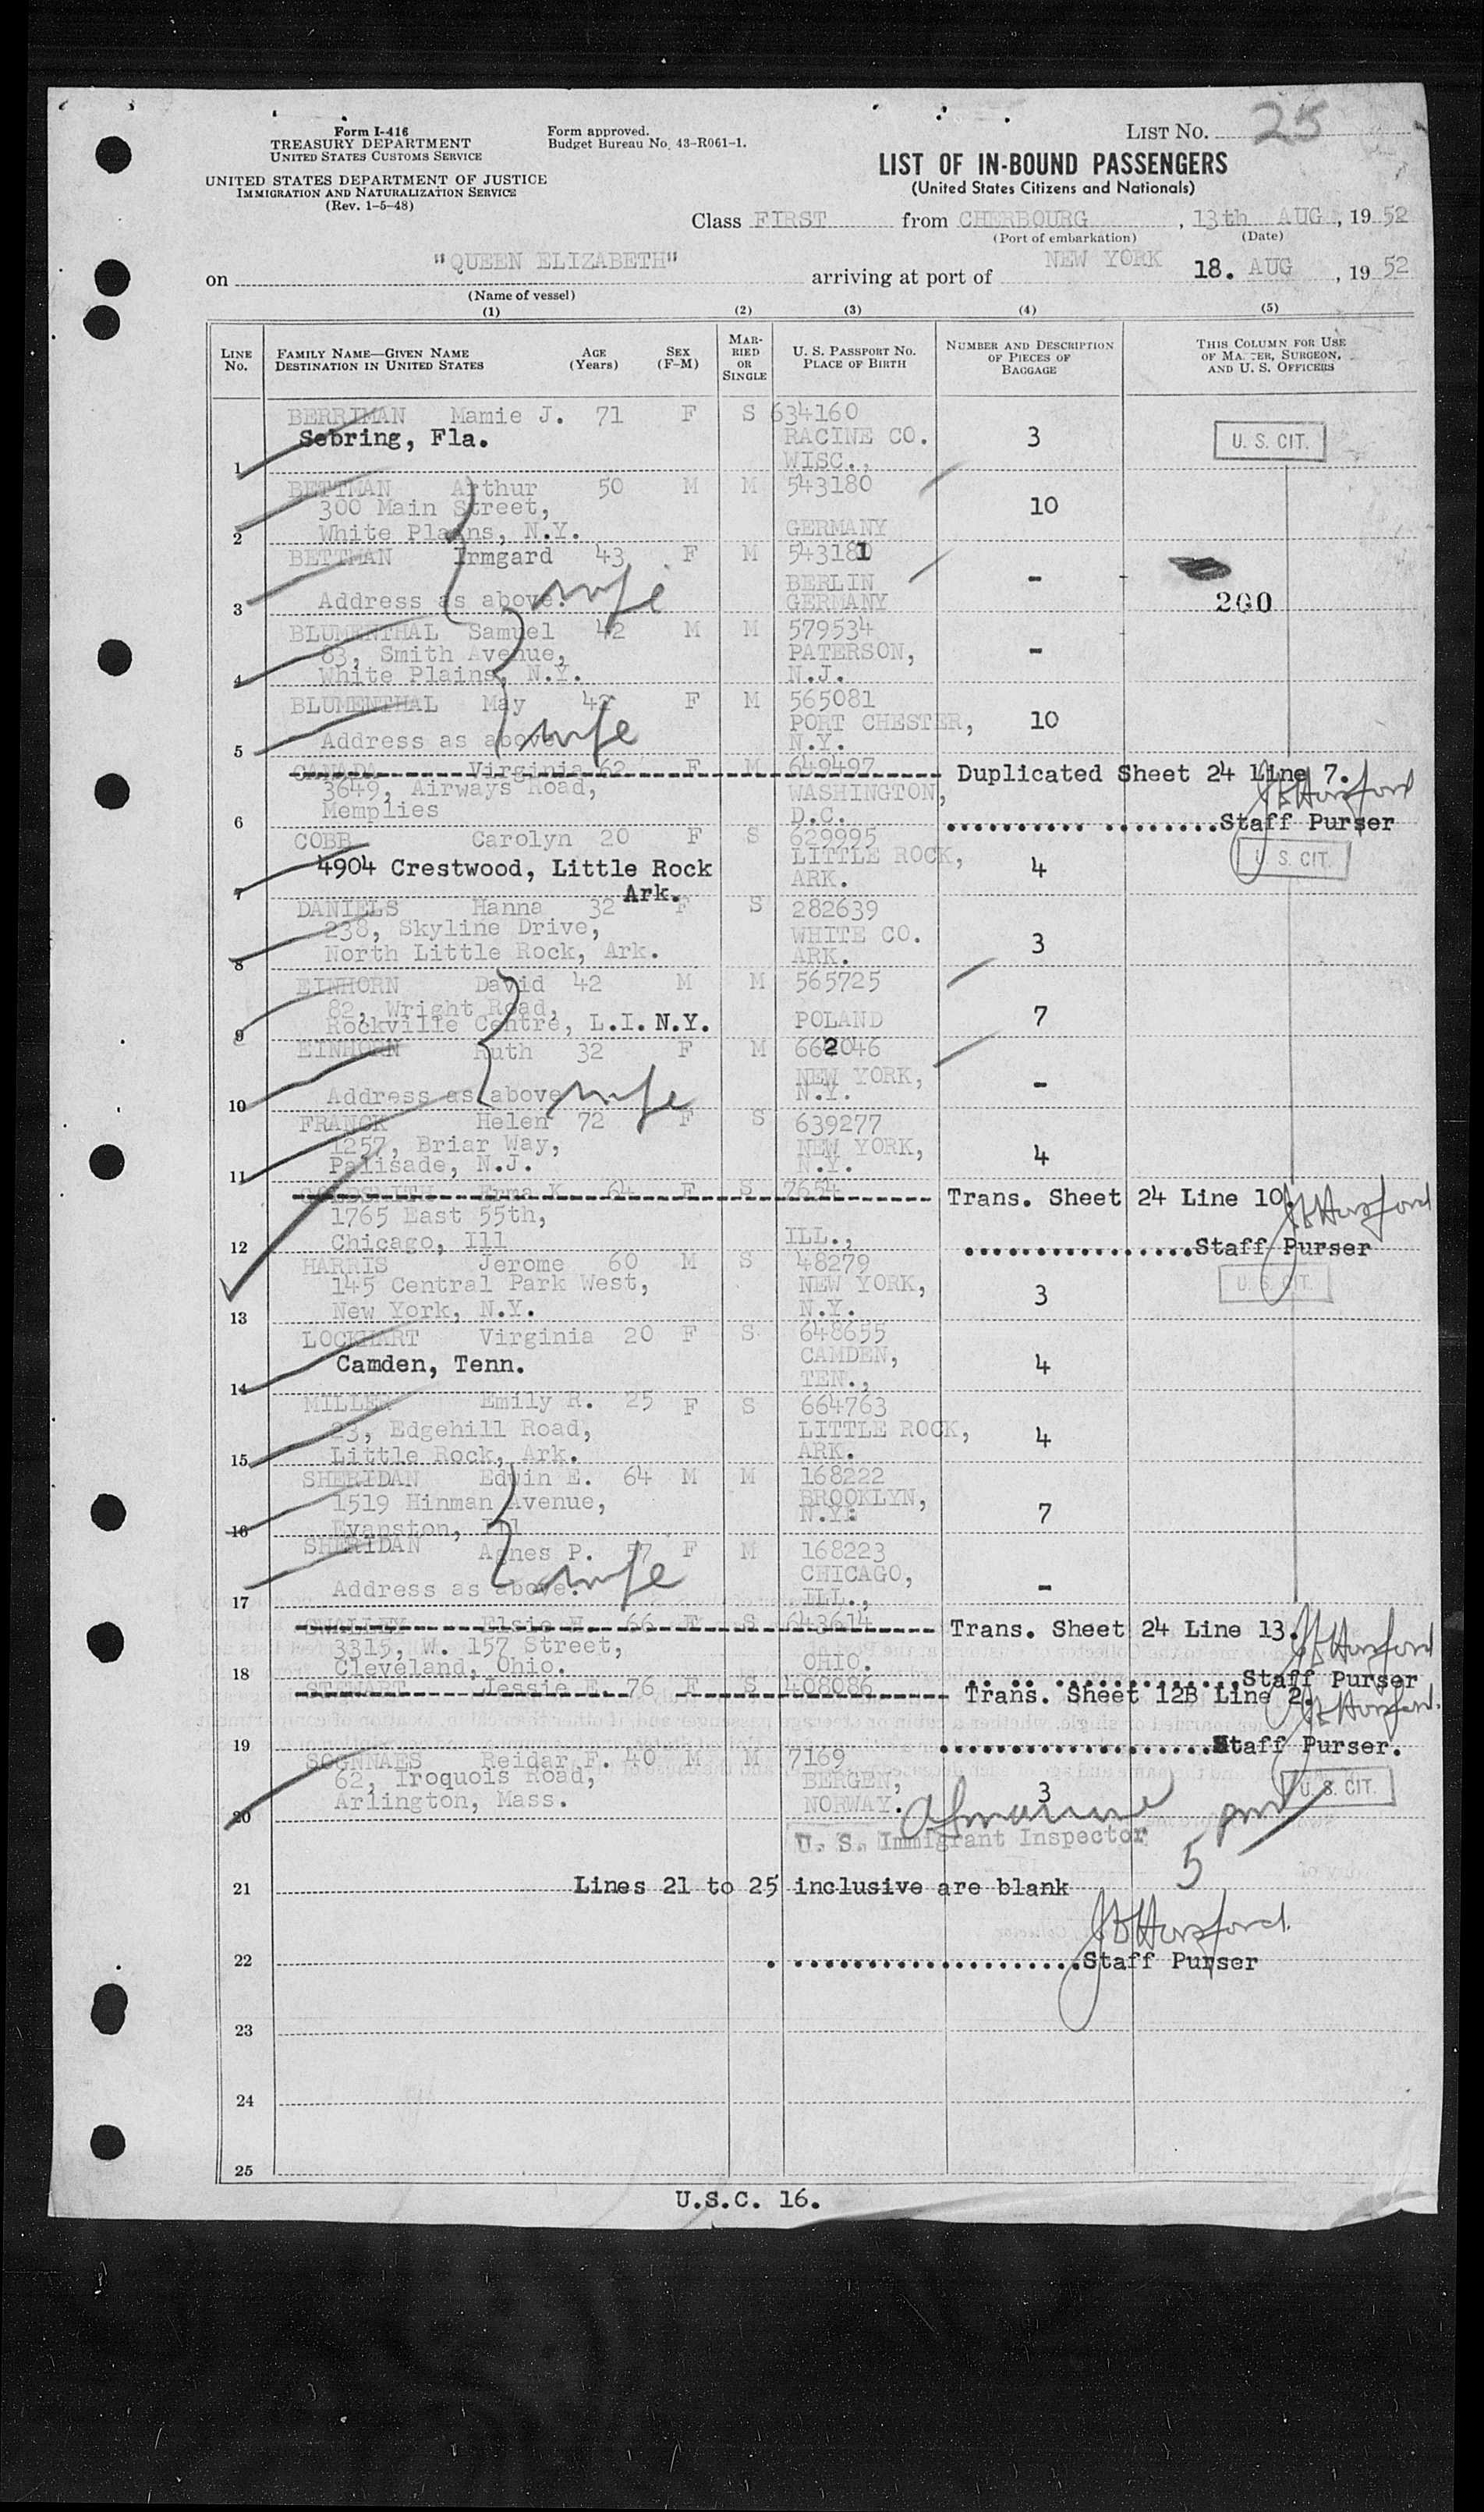 Form I-416
TREASURY DEPARTMENT
UNITED STATES CUSTOMS SERVICE
UNITED STATES DEPARTMENT OF JUSTICE
IMMIGRATION AND NATURALIZATION SERVICE
(Rev. 1-5-48)
Form approved.
Budget Bureau No. 43-R061-1.
LIST NO. 25
LIST OF IN-BOUND PASSENGERS
(United States Citizens and Nationals)
Class FIRST from CHERBOURG, 13th AUG, 1952
(Port of embarkation) (Date)
on "QUEEN ELIZABETH" arriving at port of NEW YORK 18. AUG, 1952
(Name of vessel)
(1) (2) (3) (4) (5)
LINE NO.
FAMILY NAME—GIVEN NAME
DESTINATION IN UNITED STATES
AGE (Years)
SEX (F-M)
MARRIED OR SINGLE
U. S. PASSPORT NO.
PLACE OF BIRTH
NUMBER AND DESCRIPTION OF PIECES OF BAGGAGE
THIS COLUMN FOR USE OF MASTER, SURGEON, AND U. S. OFFICERS
BERRIMAN Mamie J. 71 F S 634160
Sebring, Fla. RACINE CO. 3 U. S. CIT.
1 WISC.,
BETTMAN Arthur 50 M M 543180
300 Main Street, 10
2 White Plains, N.Y. GERMANY
BETTMAN Irmgard 43 F M 543181
BERLIN -
3 Address as above. wife GERMANY 200
BLUMENTHAL Samuel 42 M M 579534
83, Smith Avenue, PATERSON, -
4 White Plains, N.Y. N.J.
BLUMENTHAL May F M 565081
PORT CHESTER, 10
5 Address as above. wife N.Y.
CANADA Virginia 62 F M 649497 Duplicated Sheet 24 Line 7.
3649, Airways Road, WASHINGTON,
6 Memplies D.C. Staff Purser
COBB Carolyn 20 F S 629995
4904 Crestwood, Little Rock LITTLE ROCK, 4 U. S. CIT.
7 Ark. ARK.
DANIELS Hanna 32 F S 282639
238, Skyline Drive, WHITE CO. 3
8 North Little Rock, Ark. ARK.
EINHORN David 42 M M 565725
82, Wright Road,
9 Rockville Centre, L.I. N.Y. POLAND 7
EINHORN Ruth 32 F M 662046
NEW YORK, -
10 Address as above wife N.Y.
FRANCK Helen 72 F S 639277
1257, Briar Way, NEW YORK, 4
11 Palisade, N.J. N.Y.
GOLDSMITH Erma K. 64 F S 7654 Trans. Sheet 24 Line 10.
1765 East 55th,
12 Chicago, Ill ILL., Staff Purser
HARRIS Jerome 60 M S 48279 U. S. CIT.
145 Central Park West, NEW YORK, 3
13 New York, N.Y. N.Y.
LOCKHART Virginia 20 F S 648655
Camden, Tenn. CAMDEN, 4
14 TEN.,
MILLER Emily R. 25 F S 664763
23, Edgehill Road, LITTLE ROCK, 4
15 Little Rock, Ark. ARK.
SHERIDAN Edwin E. 64 M M 168222
1519 Hinman Avenue, BROOKLYN, 7
16 Evanston, Ill N.Y.
SHERIDAN Agnes P. 57 F M 168223
CHICAGO, -
17 Address as above. wife ILL.,
SWALLEY Elsie H. 66 F S 643614 Trans. Sheet 24 Line 13.
3315, W. 157 Street,
18 Cleveland, Ohio. OHIO. Staff Purser
STEWART Jessie E. 76 F S 408086 Trans. Sheet 12B Line 2.
19 Staff Purser.
SOGNNAES Reidar F. 40 M M 7169
62, Iroquois Road, BERGEN, 3 U. S. CIT.
20 Arlington, Mass. NORWAY.
U. S. Immigrant Inspector
5
21 Lines 21 to 25 inclusive are blank
22 Staff Purser
23
24
25
U.S.C. 16.